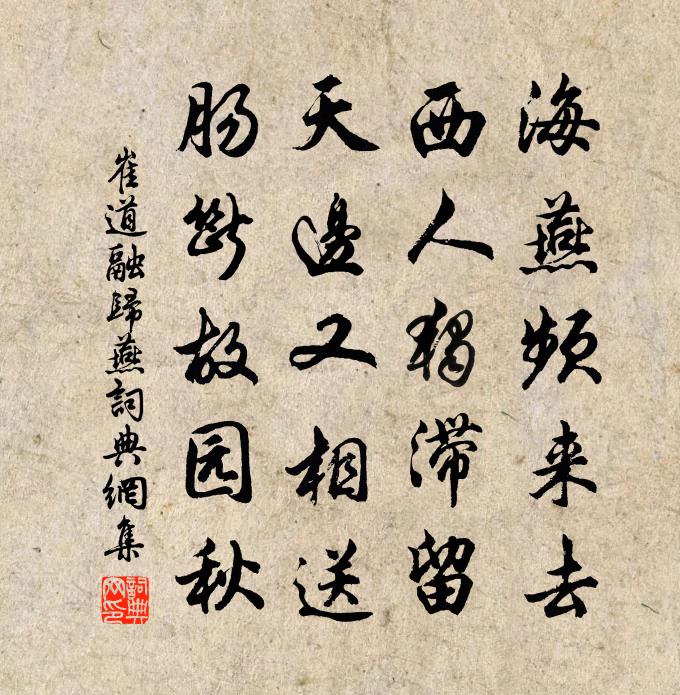 海燕频来去
西人独滞留
天边又相送
肠断故园秋
崔道融歸燕詞典網集
詞典网印